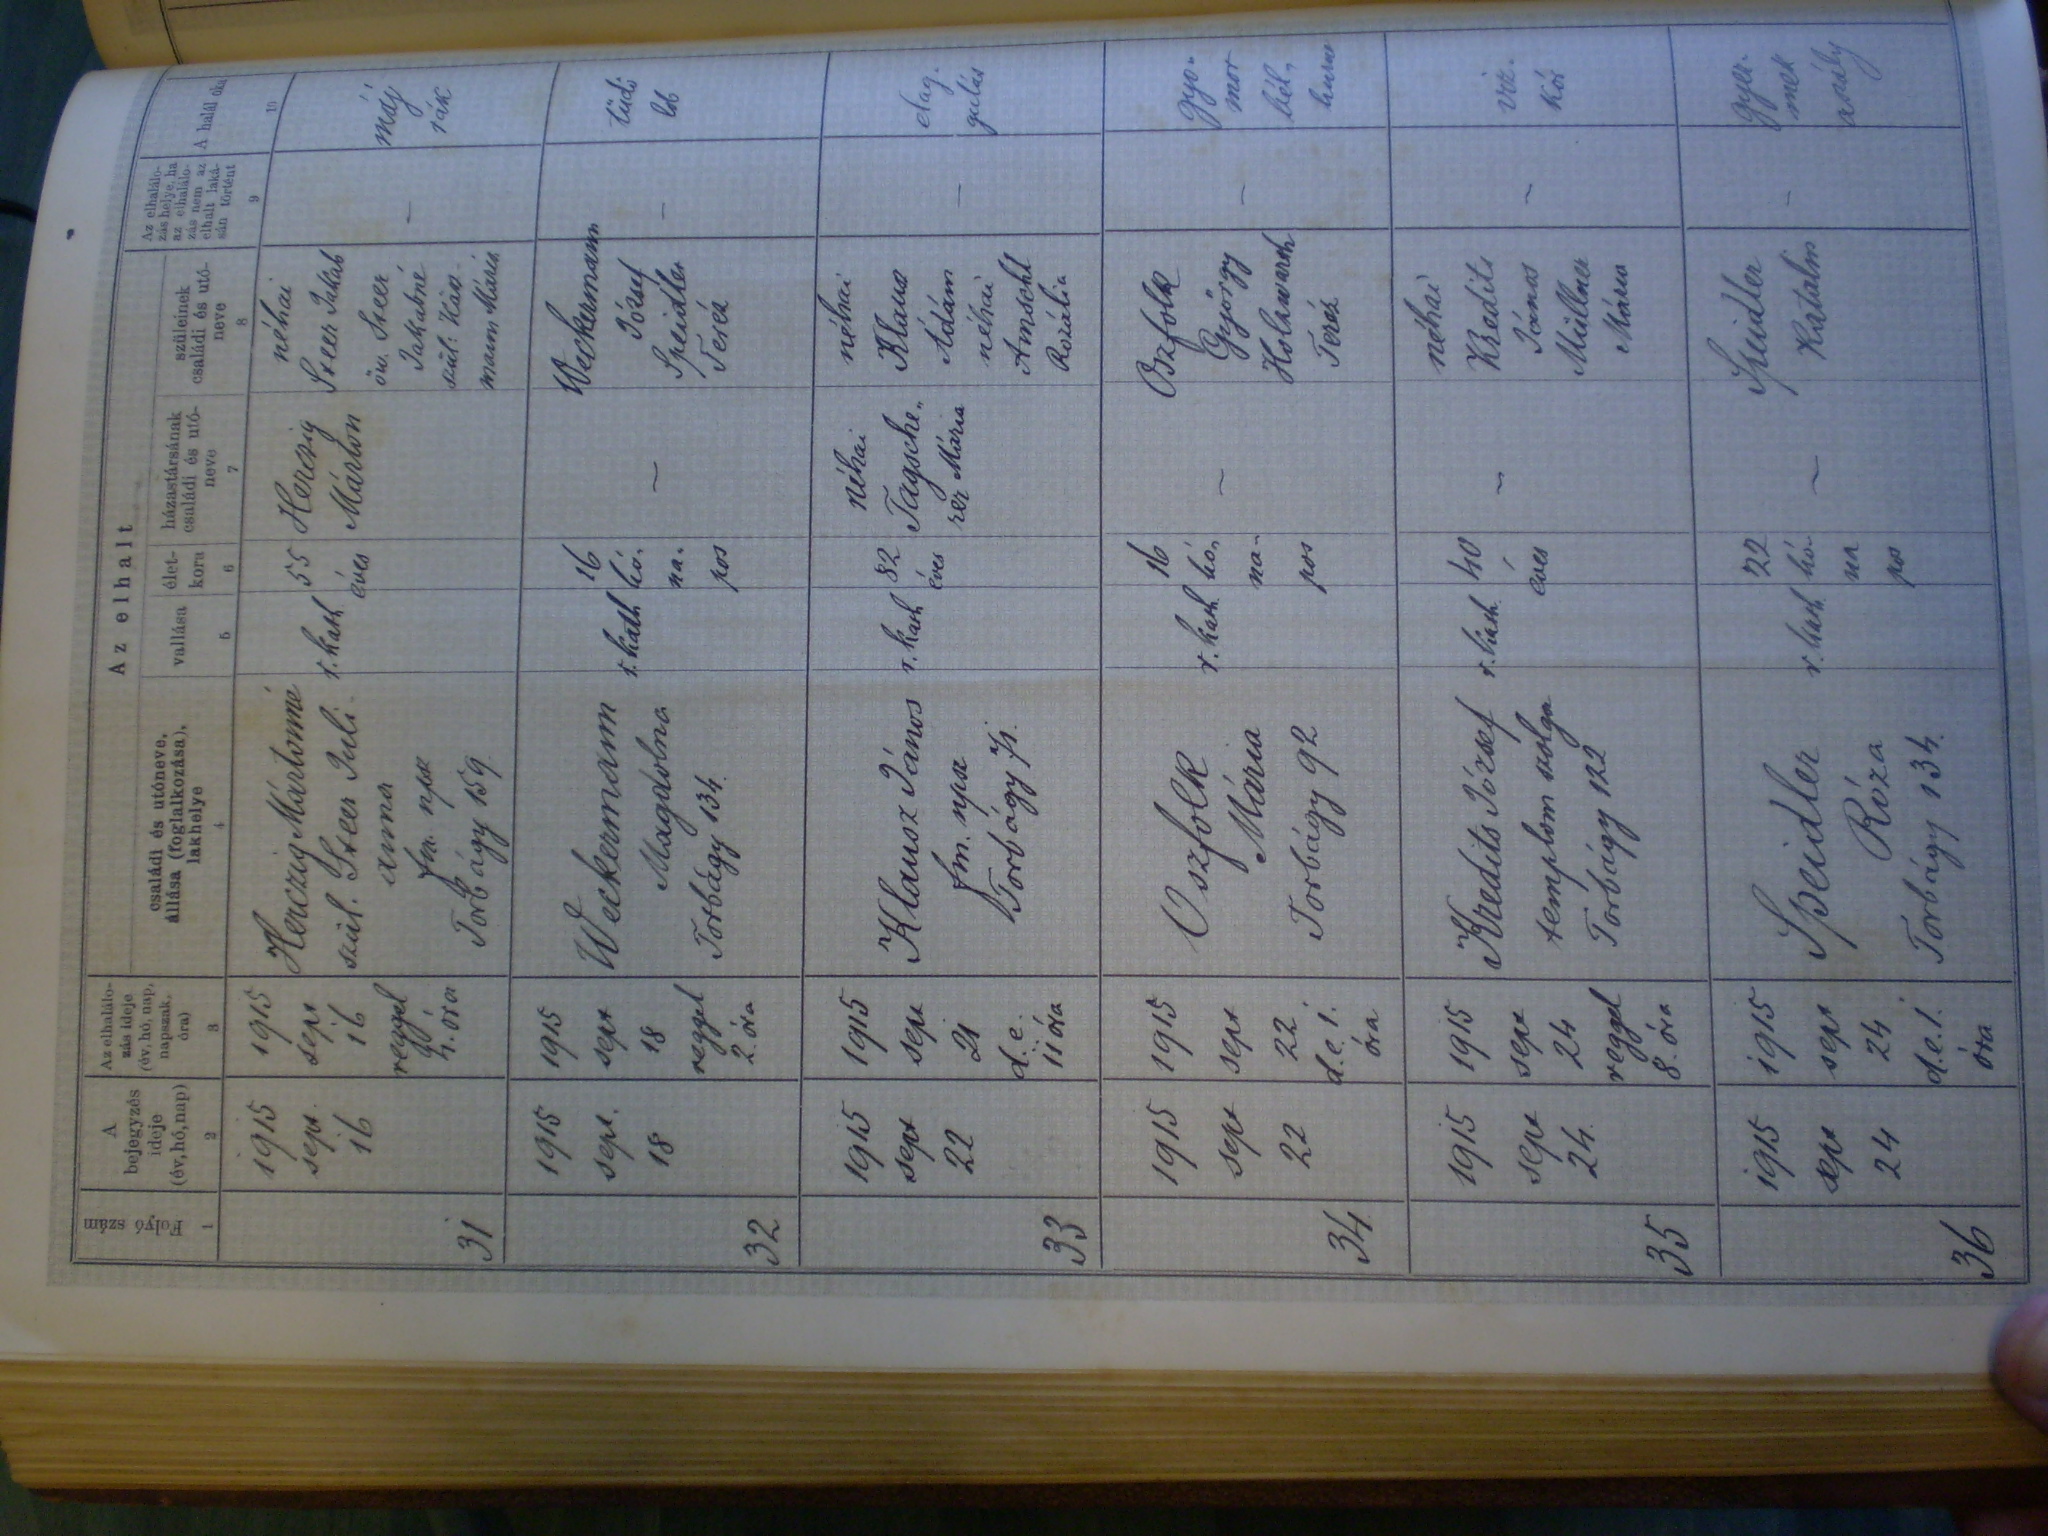 Az elhalt
Folyó szám
A
bejegyzés
ideje
(év, hó, nap)
Az elhalálo-
zás ideje
(év, hó, nap,
napszak,
óra)
családi és utóneve,
állása (foglalkozása),
lakhelye
vallása
élet-
kora
házastársának
családi és utó-
neve
szüleinek
családi és utó-
neve
Az elhalálo-
zás helye, ha
az elhalálo-
zás nem az
elhalt laká-
sán történt
A halál oka
1
2
3
4
5
6
7
8
9
10
31
1915
sept.
16
1915
sept
16
reggel
4. óra
Herczig Mártonné
szül. Steer Juli-
anna
fm. npsz
Torbágy 159.
r. kath
55
éves
Herczig
Márton
néhai
Steer Jakab
öv. Steer
Jakabné
szül.
mann Mária
—
máj
rák
32
1915
sept.
18
1915
sept
18
reggel
2. óra
Weckermann
Magdolna
Torbágy 134.
r. kath
16
hó-
na-
pos
—
Weckermann
József
Speidler
Teréz
—
tüdő
lob
33
1915
sept
22
1915
sept
21
d. e.
11 óra
Klausz János
fm. npsz
Torbágy 71.
r. kath
82
éves
néhai
Tagsche-
rer Mária
néhai
Klausz
Ádám
néhai
Amschl
Rozália
—
elag-
gulás
34
1915
sept
22
1915
sept
22
d. e. 1.
óra
Oszfolk
Mária
Torbágy 92
r. kath.
16
hó-
na-
pos
—
Oszfolk
György
Holzwarth
Teréz
—
gyo-
mor
bél-
hurut
35
1915
sept
24.
1915
sept
24
reggel
8. óra
Kredits József
templom szolga
Torbágy 122
r. kath.
40
éves
—
néhai
Kredits
János
Müllner
Mária
—
víz-
kór
36
1915
sept
24
1915
sept
24
d. e. 1.
óra
Speidler
Róza
Torbágy 134.
r. kath.
22
hó-
na
pos
—
Speidler
Katalin
—
gyer-
mek
aszály